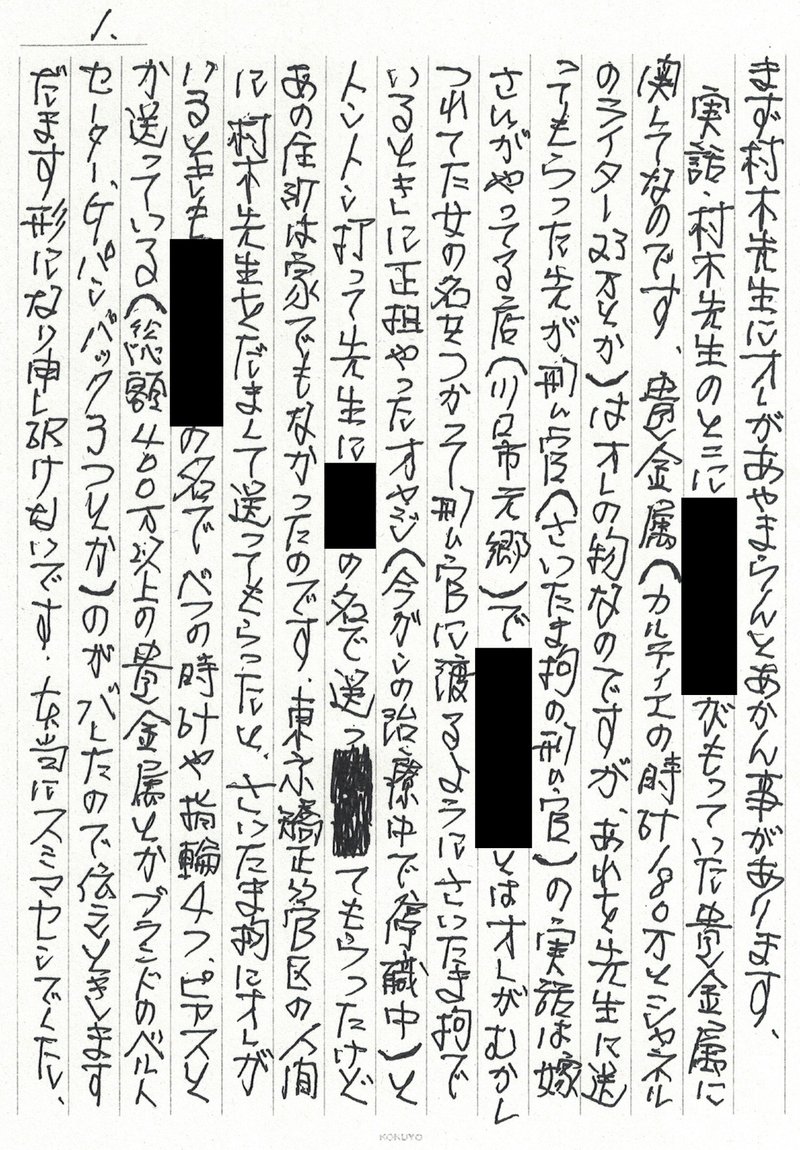 1.
まず村木先生にオレがあやまらんとあかん事があります、
実話・村木先生のとこに
がもっていた貴金属に
関してなのです、貴金属(カルティエの時計180万とシャネル
のライター23万とか)はオレの物なのですが、あれを先生に送
ってもらった先が刑ム官(さいたま拘の刑ム官)の実話は嫁
さいがやってる店(川口市元郷)で
とはオレがむかし
つれてた女の名をつかって刑ム官に渡るようにさいたま拘で
いるときに正担やったオヤジ(今がンの治療中で停職中)と
トントン打って先生に
の名で送っ
てもらったけど
あの住所は家でもなかったのです、東京矯正管区の人間
に村木先生をだまして送ってもらったと、さいたま拘にオレが
いるときも
の名でべつの時計や指輪4つ、ピアスと
か送っている(総額400万以上の貴金属とかブランドのベルト
セーター、ケパンバック3つとか)のがバレたので伝えときます
だます形になり申し訳けないです.本当にスミマセンでした、
KOKUYO